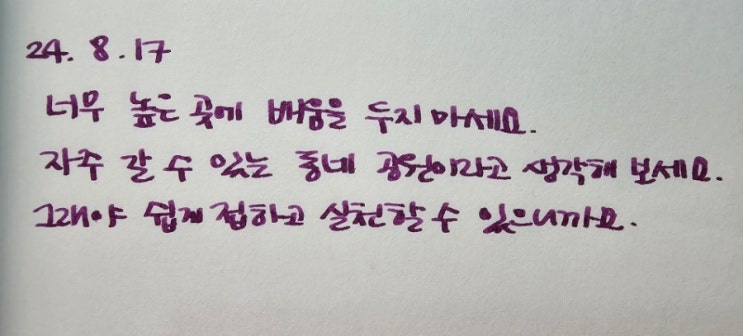 24. 8. 17
너무 높은 곳에 배움을 두지 마세요.
자주 갈 수 있는 동네 공원이라고 생각해 보세요.
그래야 쉽게 접하고 실천할 수 있으니까요.